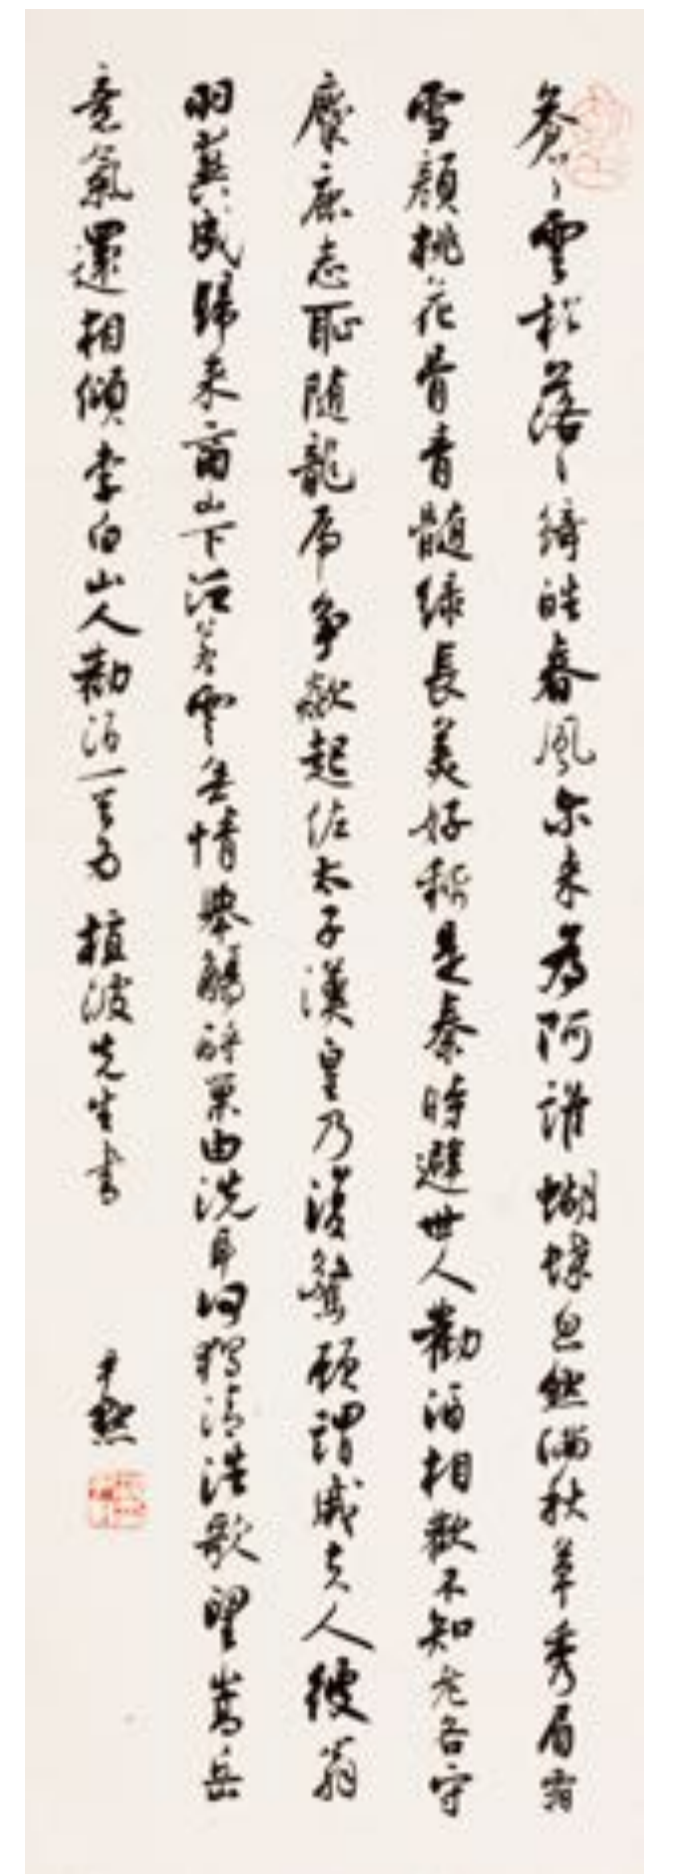 蒼〻雲松落〻綺皓春風尔来為阿誰蝴蝶忽然滿秋草秀眉霜
雪顏桃花骨青髓綠長美好稱是秦時避世人勸酒相歡不知老各守
麋鹿志恥随龍虎爭欻起佐太子漢皇乃復驚顧謂戚夫人彼翁
羽翼成歸来商山下泛若雲無情舉觴酹巢由洗耳何獨清浩歌望嵩岳
意氣還相傾李白山人勸酒一首為 植波先生書 尹默